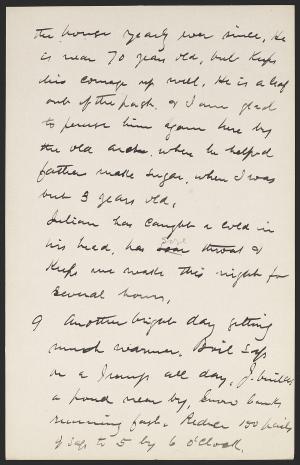 the house yearly ever since. He
is near 70 years old, but keeps
his courage up well. He is a leaf
out of the past. & I am glad
to peruse him again here by
the old arch, where he helped
father make sugar, when I was
but 3 years old.
Julian has caught a cold in
his head, has sore throat &
keeps me awake this night for
several hours.
9 Another bright day getting
much warmer. Boil sap
on a jump all day, J. builds
a pond near by, snow banks
running fast. Reduce 150 pails
of sap to 5 by 6 o'clock.